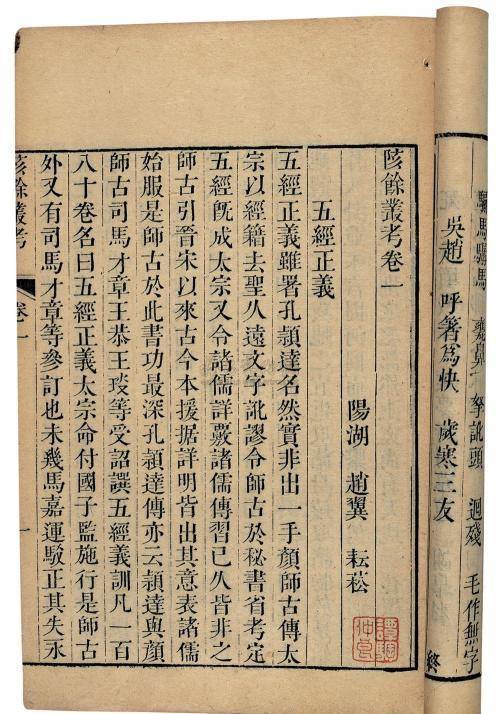 拏訛頭 迴殘 毛作無字
吳趙 呼箸爲快 歲寒三友
終
陔餘叢考卷一
陽湖 趙翼 耘菘
五經正義
五經正義雖署孔穎達名然實非出一手顏師古傳太
宗以經籍去聖人遠文字訛謬令師古於秘書省考定
五經旣成太宗又令諸儒詳覈諸儒傳習已久皆非之
師古引晉宋以來古今本援據詳明皆出其意表諸儒
始服是師古於此書功最深孔穎達傳亦云穎達與顏
師古司馬才章王恭王琰等受詔譔五經義訓凡一百
八十卷名曰五經正義太宗命付國子監施行是師古
外又有司馬才章等參訂也未幾馬嘉運駁正其失永
陔餘叢考 卷一 一